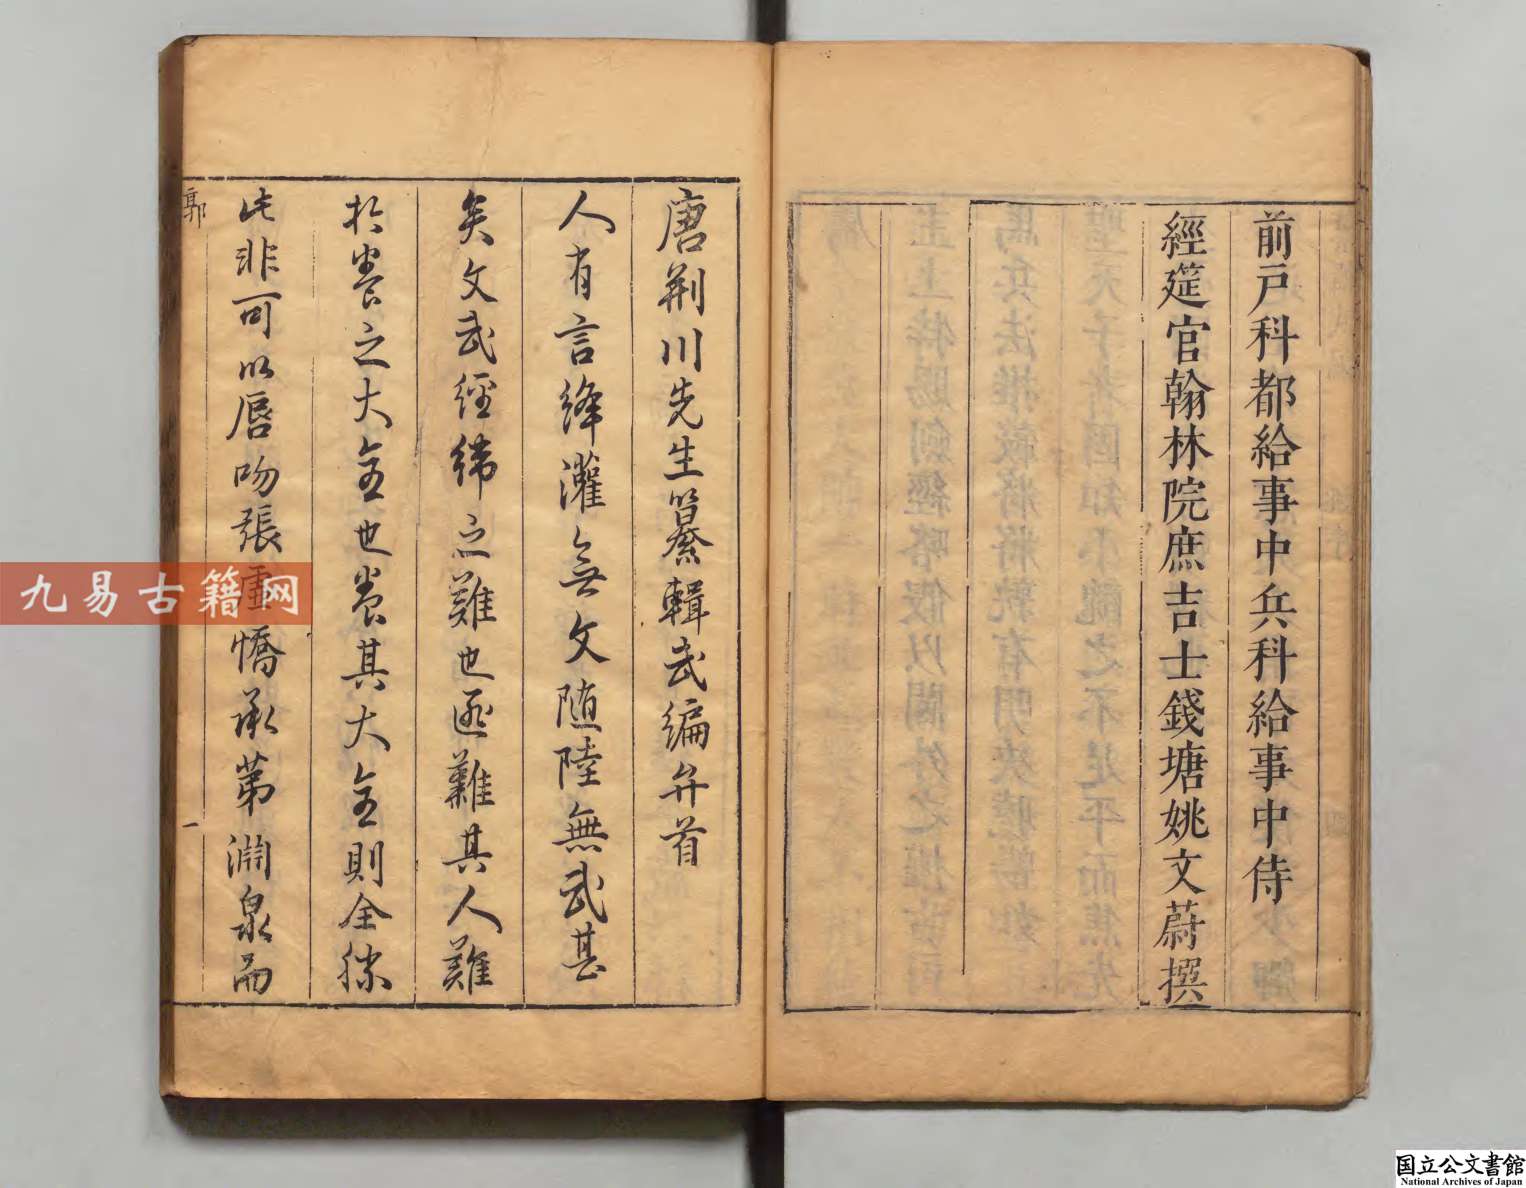 前戸科都給事中兵科給事中侍
經筵官翰林院庶吉士錢塘姚文蔚撰
唐荆川先生纂輯武編弁首
人有言絳灌無文随陸無武甚
矣文武經緯之難也匪難其人難
於養之大全也養其大全則全勝
此非可以唇吻張虛憍承第淵泉而
郭
一
九易古籍网
国立公文書館
National Archives of Japan